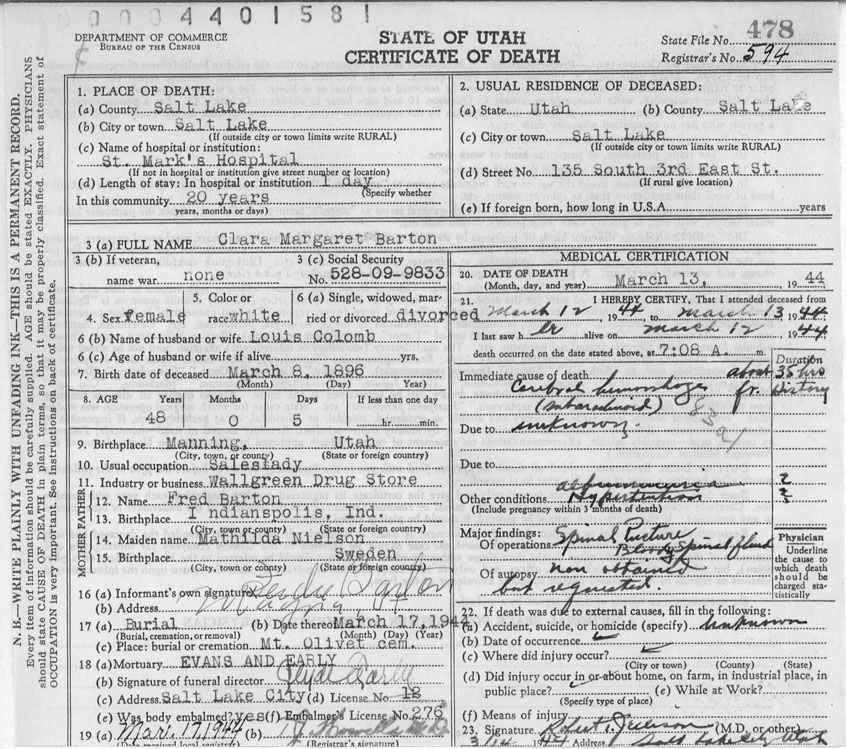 0004401581
DEPARTMENT OF COMMERCE
BUREAU OF THE CENSUS
STATE OF UTAH
CERTIFICATE OF DEATH
State File No. 478
Registrar's No. 594
N. B.—WRITE PLAINLY WITH UNFADING INK—THIS IS A PERMANENT RECORD.
Every item of information should be carefully supplied. AGE should be stated EXACTLY. PHYSICIANS
should state CAUSE OF DEATH in plain terms, so that it may be properly classified. Exact statement of
OCCUPATION is very important. See instructions on back of certificate.
1. PLACE OF DEATH:
(a) County Salt Lake
(b) City or town Salt Lake
(If outside city or town limits write RURAL)
(c) Name of hospital or institution:
St. Mark's Hospital
(If not in hospital or institution give street number or location)
(d) Length of stay: In hospital or institution 1 day
(Specify whether
In this community 20 years
years, months or days)
2. USUAL RESIDENCE OF DECEASED:
(a) State Utah (b) County Salt Lake
(c) City or town Salt Lake
(If outside city or town limits write RURAL)
(d) Street No 135 South 3rd East St.
(If rural give location)
(e) If foreign born, how long in U.S.A years
3 (a) FULL NAME Clara Margaret Barton
3 (b) If veteran, name war. none
3 (c) Social Security No. 528-09-9833
4. Sex female
5. Color or race white
6 (a) Single, widowed, married or divorced divorced
6 (b) Name of husband or wife Louis Colomb
6 (c) Age of husband or wife if alive yrs.
7. Birth date of deceased March 8, 1896
(Month) (Day) (Year)
8. AGE Years Months Days If less than one day
48 0 5 hr. min.
9. Birthplace Manning, Utah
(City, town, or county) (State or foreign country)
10. Usual occupation Saleslady
11. Industry or business Wallgreen Drug Store
FATHER
12. Name Fred Barton
13. Birthplace Indianspolis, Ind.
(City, town or county) (State or foreign country)
MOTHER
14. Maiden name Mathilda Nielson
15. Birthplace Sweden
(City, town or county) (State or foreign country)
16 (a) Informant's own signature Barton
(b) Address
17 (a) Burial (b) Date thereof March 17, 1944
(Burial, cremation, or removal) (Month) (Day) (Year)
(c) Place: burial or cremation Mt. Olivet cem.
18 (a) Mortuary EVANS AND EARLY
(b) Signature of funeral director Clyde Early
(c) Address Salt Lake City (d) License No. 12
(e) Was body embalmed? yes (f) Embalmer's License No. 276
19 (a) Mar. 17, 1944 (b)
(Date received local registrar) (Registrar's signature)
MEDICAL CERTIFICATION
20. DATE OF DEATH
(Month, day, and year) March 13, 1944
21. I HEREBY CERTIFY, That I attended deceased from
March 12 1944, to March 13 1944
I last saw her alive on March 12 1944
death occurred on the date stated above, at 7:08 A. m.
Duration
Immediate cause of death about 35 hrs
Cerebral hemorrhage fr. History
(subarachnoid)
Due to unknown.
Due to
albuminuria ?
Other conditions Hypertention ?
(Include pregnancy within 3 months of death)
Major findings:
Of operations Spinal Puncture
Bloody Spinal fluid
Of autopsy non obtained
but requested.
Physician
Underline
the cause to
which death
should be
charged sta-
tistically
22. If death was due to external causes, fill in the following:
(a) Accident, suicide, or homicide (specify) Unknown
(b) Date of occurrence
(c) Where did injury occur?
(City or town) (County) (State)
(d) Did injury occur in or about home, on farm, in industrial place, in
public place? (e) While at Work?
(Specify type of place)
(f) Means of injury
23. Signature Robert (M.D. or other)
3/14 1944 Address Salt Lake City Utah